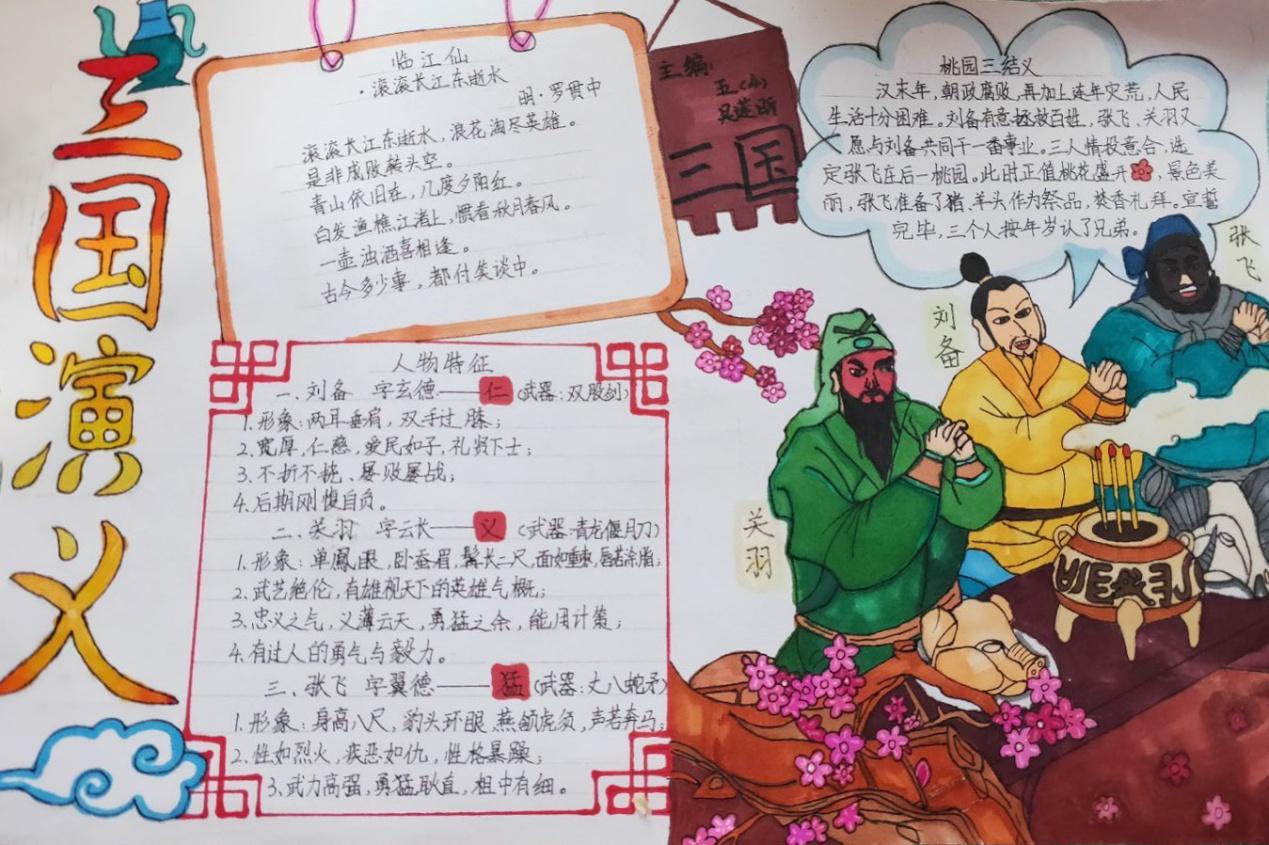 三国演义
临江仙
·滚滚长江东逝水
明·罗贯中
滚滚长江东逝水，浪花淘尽英雄。
是非成败转头空。
青山依旧在，几度夕阳红。
白发渔樵江渚上，惯看秋月春风。
一壶浊酒喜相逢。
古今多少事，都付笑谈中。
主编：
五(4)
吴莲昕
三国
桃园三结义
汉末年，朝政腐败，再加上连年灾荒，人民
生活十分困难。刘备有意拯救百姓，张飞、关羽又
愿与刘备共同干一番事业。三人情投意合，选
定张飞庄后一桃园。此时正值桃花盛开，景色美
丽，张飞准备了猪、羊头作为祭品，焚香礼拜。宣誓
完毕，三个人按年岁认了兄弟。
张飞
刘备
关羽
人物特征
一、刘备 字玄德——仁(武器：双股剑)
1.形象：两耳垂肩，双手过膝；
2.宽厚，仁慈，爱民如子，礼贤下士；
3.不折不挠、屡败屡战；
4.后期刚愎自负。
二、关羽 字云长——义(武器：青龙偃月刀)
1.形象：单鳳眼，卧蚕眉，髯长二尺，面如重枣，唇若涂脂；
2.武艺绝伦，有雄视天下的英雄气概；
3.忠义之气，义薄云天，勇猛之余，能用计策；
4.有过人的勇气与毅力。
三、张飞 字翼德——猛(武器：丈八蛇矛)
1.形象：身高八尺，豹头环眼，燕颔虎须，声若奔马；
2.性如烈火，疾恶如仇，性格暴躁；
3.武力高强，勇猛耿直，粗中有细。